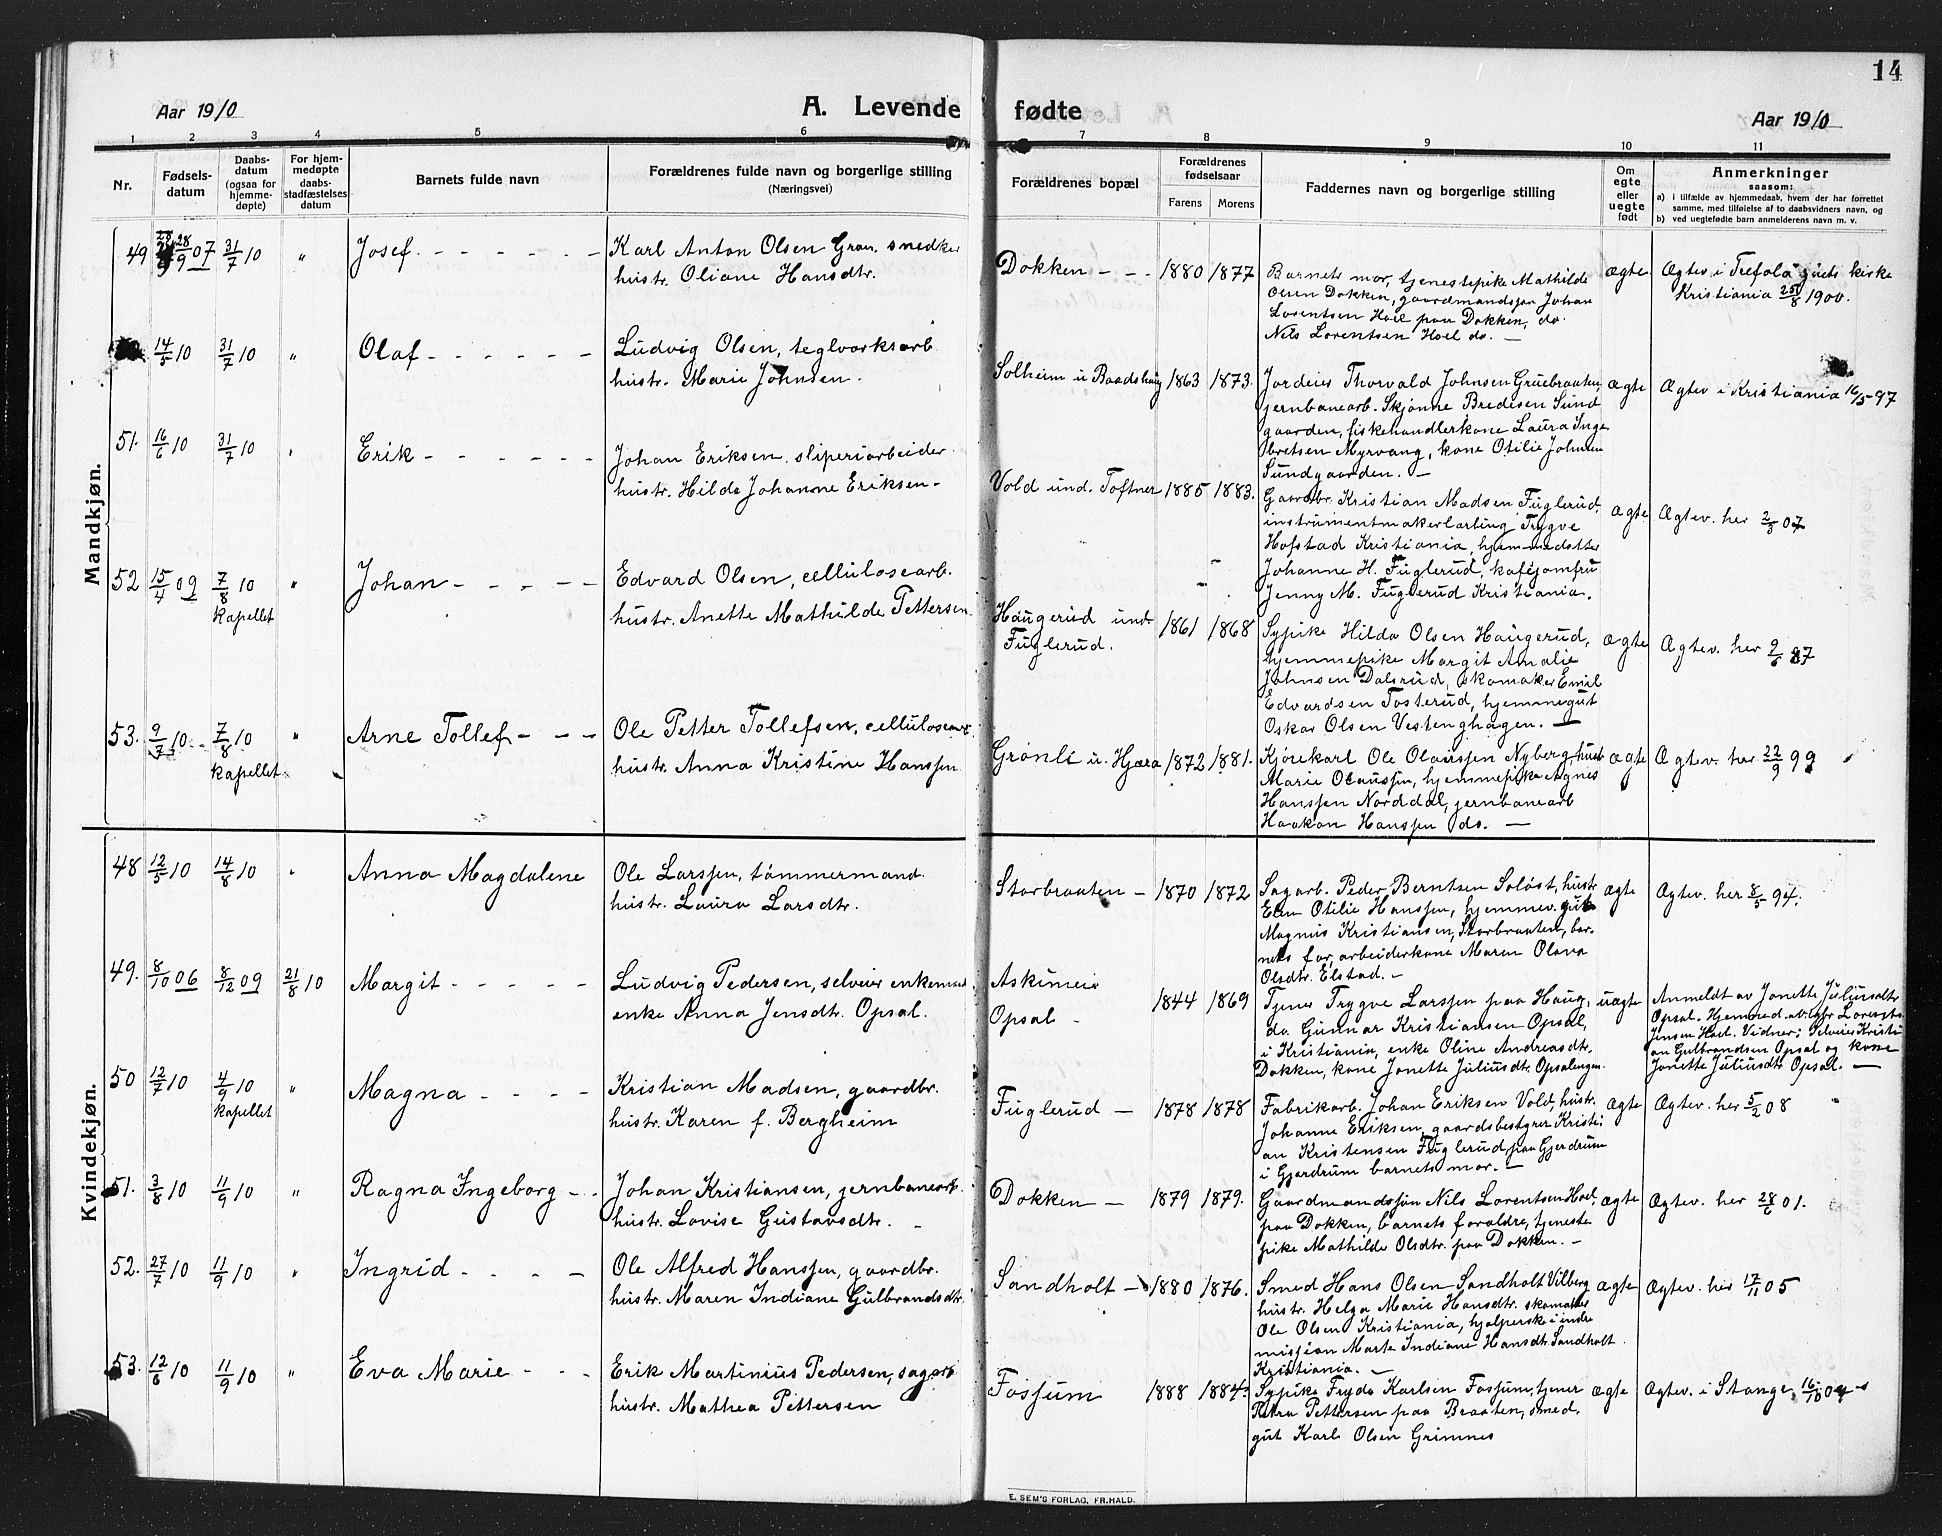 14
Aar 1910
A. Levende fødte
Aar 1910
1 2 3 4 5 6 7 8 9 10 11
Nr.
Fødsels-
datum
Daabs-
datum
(ogsaa for
hjemme-
døpte)
For hjem-
medøpte
daabs-
stadfæstelses
datum
Barnets fulde navn
Forældrenes fulde navn og borgerlige stilling
(Næringsvei)
Forældrenes bopæl
Forældrenes
fødselsaar
Farens Morens
Faddernes navn og borgerlige stilling
Om
egte
eller
uegte
født
Anmerkninger
saasom:
a) i tilfælde av hjemmedaab, hvem der har forrettet
samme, med tilføielse af to daabsvidners navn, og
b) ved uegtefødte barn anmelderens navn m. v.
Mandkjøn.
49 28/9 07 31/7 10 " Josef
Karl Anton Olsen Gran, snedker
hustr. Oliane Hansdtr.
Dokken 1880 1877
Barnets mor, tjenestepike Mathilde
Olsen Dokken, gaardmandssøn Johan
Lorentsen Hoel paa Dokken, do.
Nils Lorentsen Hoel do.
ægte
Ægtev. i Trefoldighets kirke
Kristiania 25/8 1900.
14/5 10 31/7 10 " Olaf
Ludvig Olsen, teglverksarb.
hustr. Marie Johnsen.
Solheim u Baadshaug 1863 1873.
Jordeier Thorvald Johnsen Gruebraaten,
jernbanearb. Skjønne Bredesen Sund
gaarden, fiskehandlerkone Laura Inge
bretsen Myrvang, kone Otilie Johnsen
Sundgaarden.
ægte
Ægtev i Kristiania 16/5 97
51. 16/6 10 31/7 10 Erik
Johan Eriksen, sliperiarbeider.
hustr. Hilda Johanne Eriksen
Vold und. Toftner 1885 1883.
Gaardbr. Kristian Madsen Fuglerud,
instrumentmakerlærling Trygve
Hofstad Kristiania, hjemmedatter
Johanne H. Fuglerud, kaféjomfru
Jenny M. Fuglerud Kristiania.
ægte
Ægtev. her 2/3 07
52 15/4 09 7/8 10 " Johan
kapellet
Edvard Olsen, cellulosearb.
hustr. Anette Mathilde Pettersen
Haugerud und.
Fuglerud. 1861 1868
Sypike Hilda Olsen Haugerud,
hjemmepike Margit Amalie
Johnsen Dalsrud, skomaker Emil
Edvardsen Tosterud, hjemmegut
Oskar Olsen Vestenghagen.
ægte
Ægtev. her 9/6 87
53. 9/7 10 7/8 10 " Arne Tollef
kapellet
Ole Petter Tollefsen, cellulosearb
hustr. Anna Kristine Hanssen
Grønli u. Hjæra 1872 1881.
Kjørekarl Ole Olaussen Nyberg, hustr
Marie Olaussen, hjemmepike Agnes
Hanssen Norddal, jernbanearb
Haakon Hanssen do.
ægte
Ægtev. her 22/9 99
Kvindekjøn.
48 12/5 10 14/8 10 Anna Magdalene
Ole Larssen, tømmermand
hustr. Laura Larsdtr.
Storbraaten 1870 1872
Sagarb. Peder Berntsen Soløst, hustr
Elen Otilie Hanssen, hjemmev. gut
Magnus Kristiansen, Storbraaten, bar-
nets far, arbeiderkone Maren Olava
Olsdtr. Elstad.
ægte
Ægtev. her 8/5 94.
49. 8/10 06 8/12 09 21/8 10 Margit
Ludvig Pedersen, selveier enkemand,
enke Anna Jensdtr. Opsal.
Askimeie
Opsal 1844 1869
Tjener Trygve Larssen paa Haug,
do Gunnar Kristiansen Opsal,
i Kristiania, enke Oline Andreasdtr.
Dokken, kone Jonette Juliusdtr Opsalengen.
uægte
Anmeldt av Jonette Juliusdtr
Opsal. Hjemmed. av lær Lorents
Jensen Hoel. Vidner: Selveier Kristi
an Gulbrandsen Opsal og kone
Jonette Juliusdtr Opsal.
50 12/7 10 4/9 10 " Magna
kapellet
Kristian Madsen, gaardbr.
hustr. Karen f. Bergheim
Fuglerud 1878 1878
Fabrikarb. Johan Eriksen Vold, hustr.
Johanne Eriksen, gaardsbestyrer Kristi
an Kristensen Fuglerud, paa Gjerdrum
i Gjerdrum barnets mor.
ægte
Ægtev. her 5/2 08
51. 3/8 10 11/9 10 " Ragna Ingeborg
Johan Kristiansen, jernbanearb.
hustr. Lovise Gustavsdtr.
Dokken 1879 1879.
Gaardmandssøn Nils Lorentsen Hoel
paa Dokken, barnets forældre, tjeneste
pike Mathilde Olsdtr. paa Dokken.
ægte
Ægtev. her 28/6 01.
52. 27/7 10 11/9 10 Ingrid
Ole Alfred Hanssen, gaardbr.
hustr. Maren Indiane Gulbrandsdtr.
Sandholt 1880 1876.
Smed Hans Olsen Sandholt Vilberg
hustr. Helga Marie Hansdtr. skomaker
Ole Olsen Kristiania, hjælperske i indre
mission Marte Indiane Hansdtr. Sandholt
Kristiania.
ægte
Ægtev. her 17/11 05
53. 12/6 10 11/9 10 " Eva Marie
Erik Martinius Pedersen, sagarb
hustr. Mathea Pettersen
Fossum 1888 1884.
Sypike Fryda Karlsen Fossum, tjener
Petra Pettersen paa Braaten, smed.
gut Karl Olsen Grimnes
ægte
Ægtev. i Stange, 16/10 04
E. SEM'S FORLAG, FR.HALD.